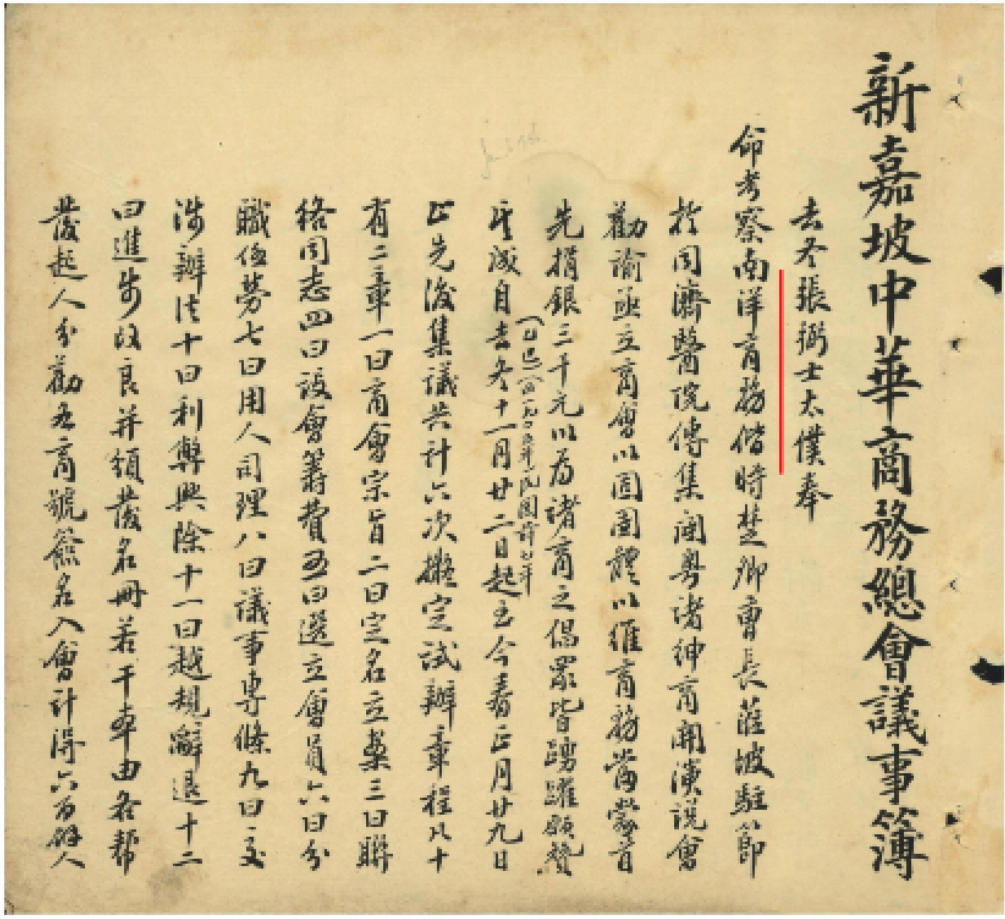 新嘉坡中華商務總會議事簿
去冬張弼士太僕奉
命考察南洋商務偕時楚卿曹長蒞坡駐節
於同濟醫院傳集閩粵諸紳商開演說會
勸諭亟立商會以固團體以維商務當蒙首
先捐銀三千元以為諸商之倡眾皆踴躍願贊
(乙巳公元一九〇五年民國前七年
其成自去冬十一月廿二日起至今春正月廿九日
止先後集議共計六次擬定試辦章程凡十
有二章一曰商會宗旨二曰定名立案三曰聯
絡同志四曰設會籌費五曰選立會員六曰分
職任勞七曰用人司理八曰議事專條九曰交
涉辦法十曰利弊興除十一曰越規辭退十二
曰進步改良并須發名冊若干本由各幫
發起人分勸各商號簽名入會計得六百餘人